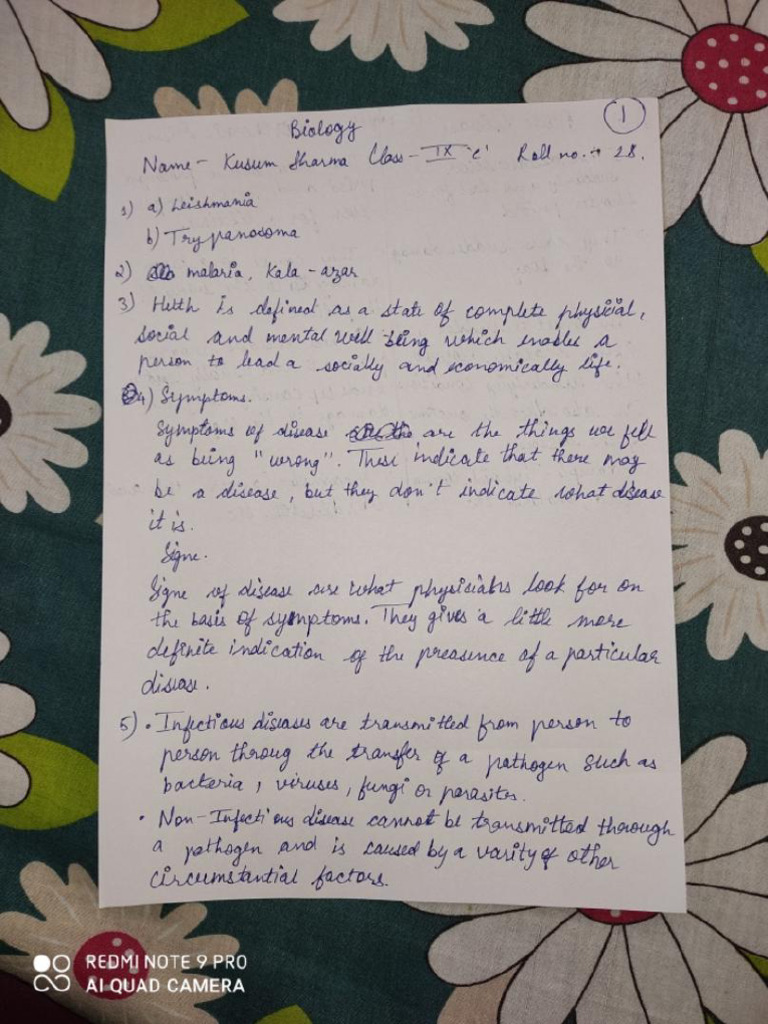 1
Biology
Name - Kusum Sharma Class - IX 'C' Roll no. → 28.
1) a) Leishmania
b) Trypanosoma
2) malaria, Kala - azar
3) Helth is defined as a state of complete physicial,
social and mental well being which enables a
person to lead a socially and economically life.
4) Symptoms.
Symptoms of disease are the things we fell
as being "wrong". These indicate that there may
be a disease, but they don't indicate what disease
it is.
Signe.
Signe of disease are what physisiahs look for on
the basis of symptoms. They gives a little more
definite indication of the preasence of a particular
disease.
5) • Infectious diseases are transmitted from person to
person throug the transfer of a pathogen such as
bacteria, viruses, fungi or parasites.
• Non-Infectious disease cannot be transmitted thorough
a pathogen and is caused by a varity of other
circumstantial factors.
REDMI NOTE 9 PRO
AI QUAD CAMERA